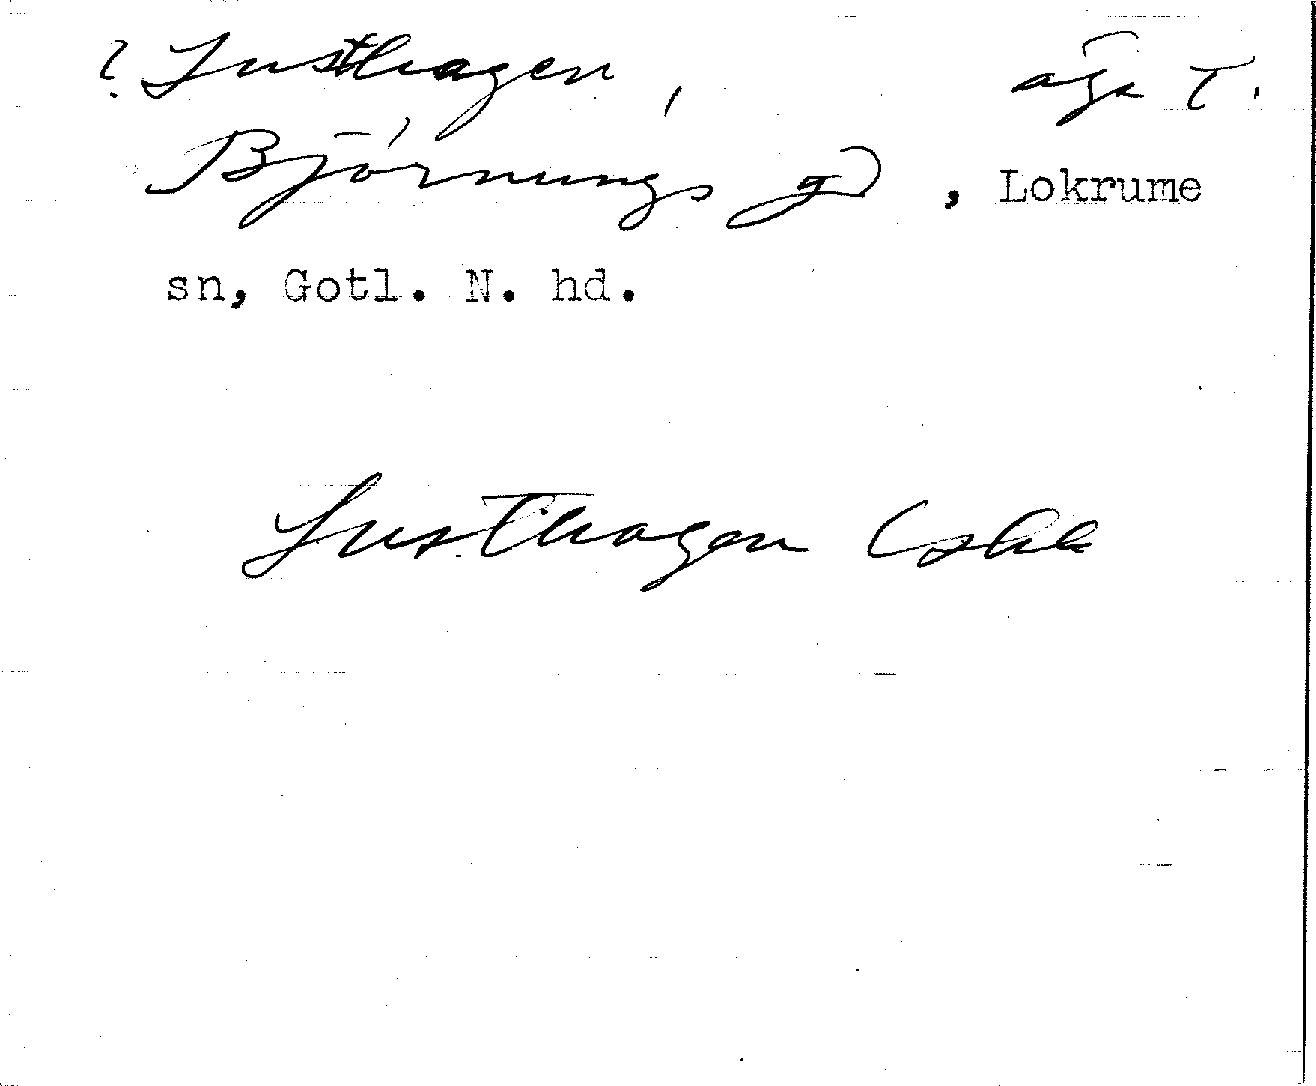 ? Lusthagen, äga t.
Björnungs gd, Lokrume
sn, Gotl. N. hd.
Lusthagen Eskk